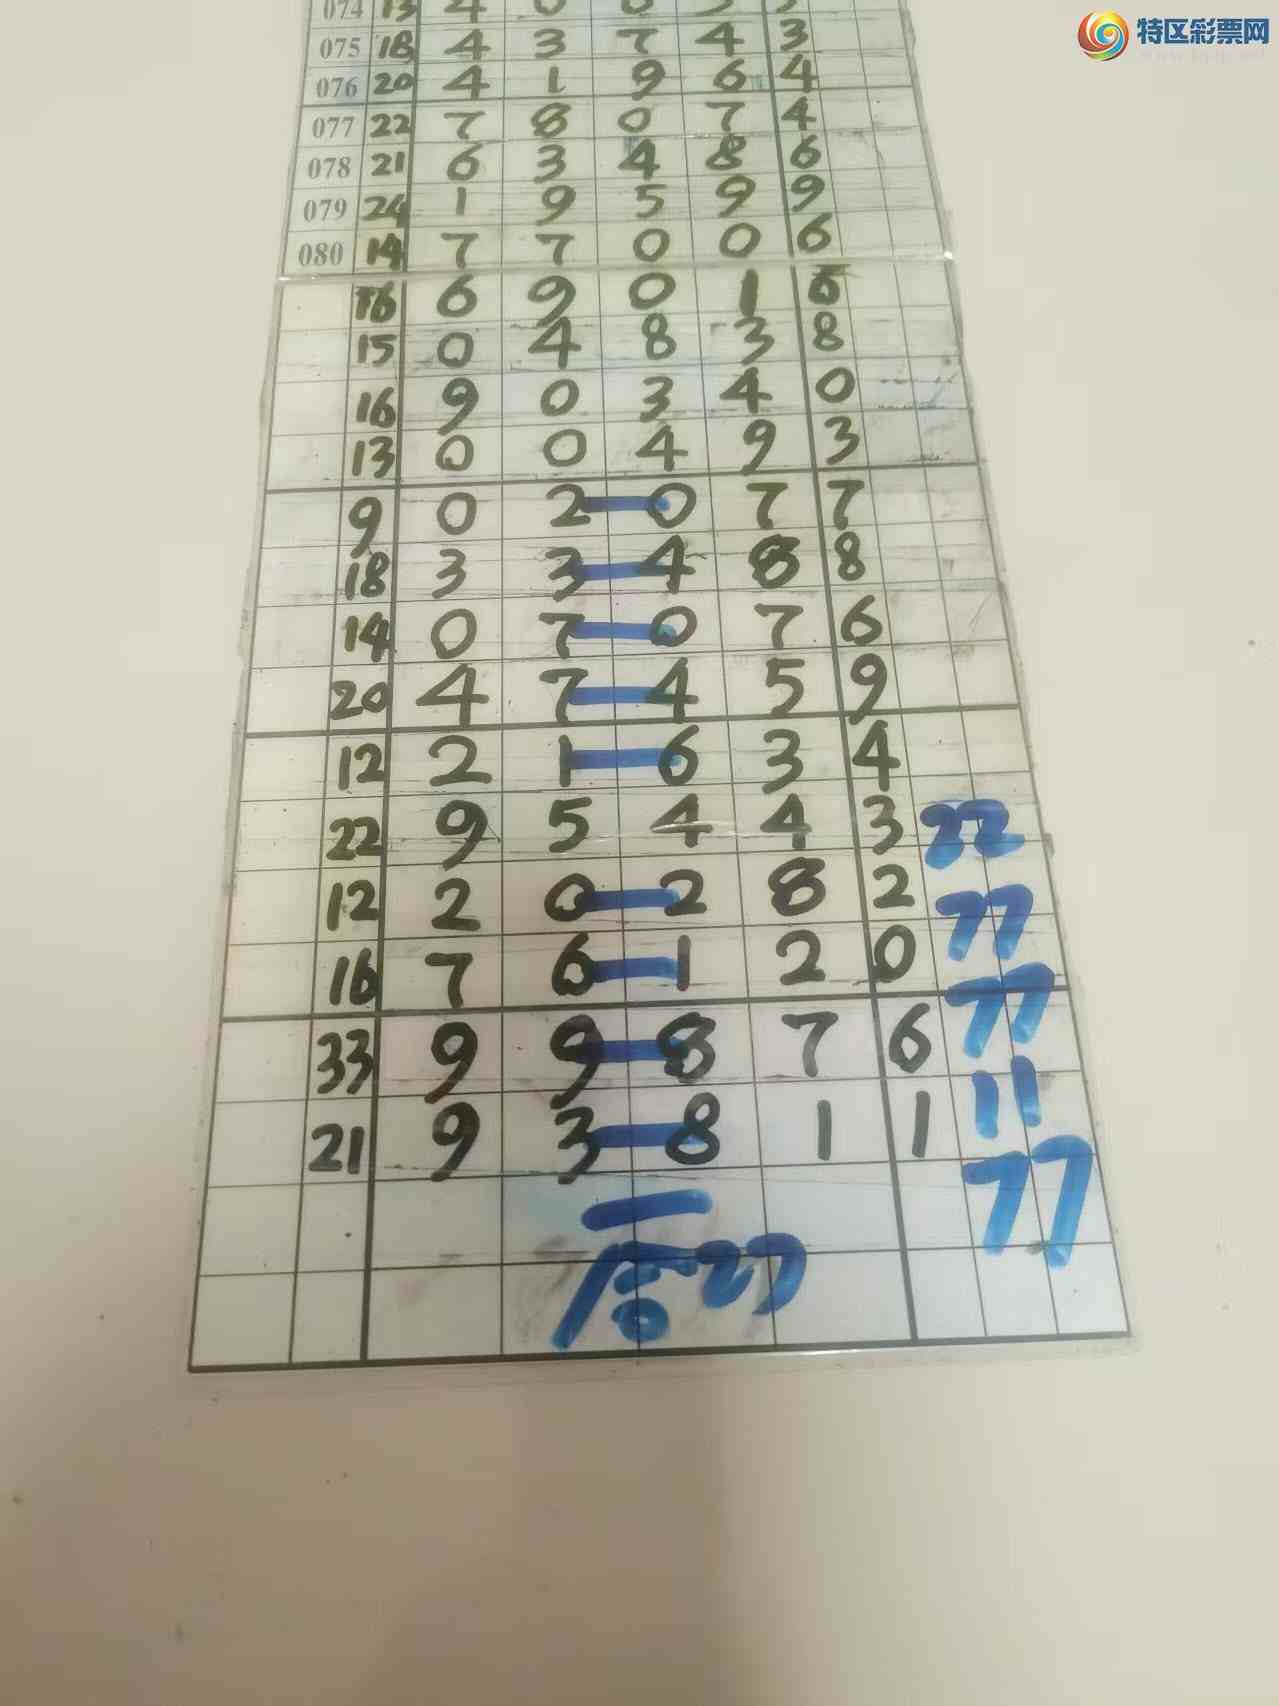 特区彩票网
074 13 4 0
075 18 4 3 7 4 3
076 20 4 1 9 6 4
077 22 7 8 0 7 4
078 21 6 3 4 8 6
079 24 1 9 5 9 9
080 14 7 7 0 0 6
16 6 9 0 1
15 0 4 8 3 8
16 9 0 3 4 0
13 0 0 4 9 3
9 0 2 0 7 7
18 3 3 4 8 8
14 0 7 0 7 6
20 4 7 4 5 9
12 2 1 6 3 4
22 9 5 4 4 3 22
12 2 0 2 8 2 77
16 7 6 1 2 0 77
33 9 9 8 7 6 11
21 9 3 8 1 1 77